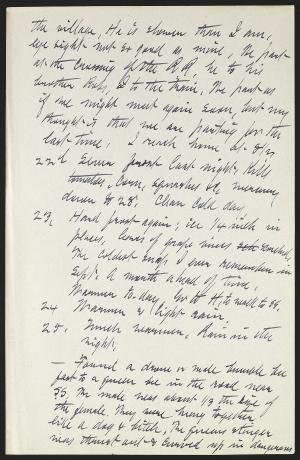 the village. He is slower than I am,
eye sight not so good as mine. We part
at the crossing of the R.R., he to his
brother, I to the train. We part as
if we might meet again soon, but my
thought is that we are parting for the
last time. I reach home at
22d Severe frost last night. Kills
tomatoes, corn, squashes etc, mercury
down to 28°. Clear cold day.
23, Hard frost again; ice 1/4 inch in
places, leaves of grape vines scorched.
The coldest snap I ever remember in
Sept. A month ahead of time.
Warmer to-day. to H, to
24 Warmer & light rain.
25. Much warmer. Rain in the
night.
— Found a drone or male bumble bee
fast to a queen bee in the road near
The male was about 1/3 the size of
the female. They were hung together
like a dog & bitch. The queens stinger
was thrust out & curved up in dangerous